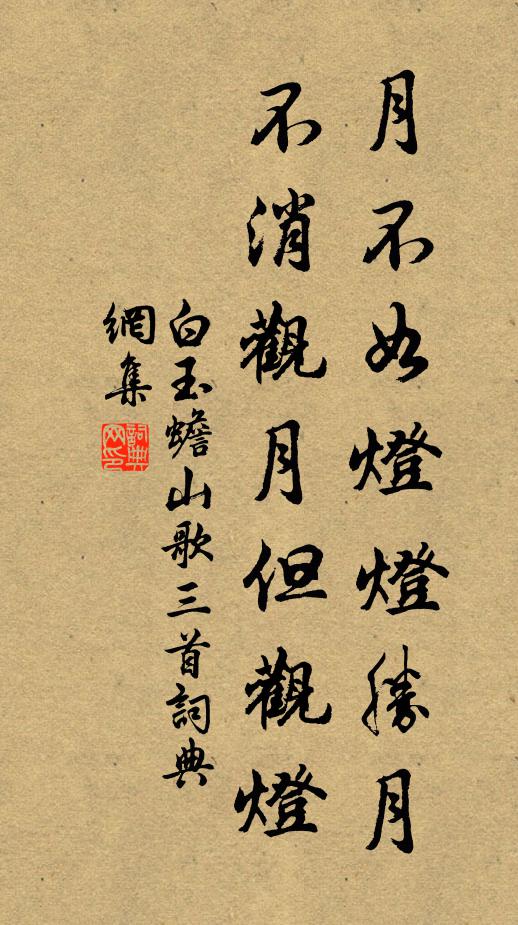 月不如燈燈勝月
不消觀月但觀燈
白玉蟾山歌三首詞典
網集
詞典
网印